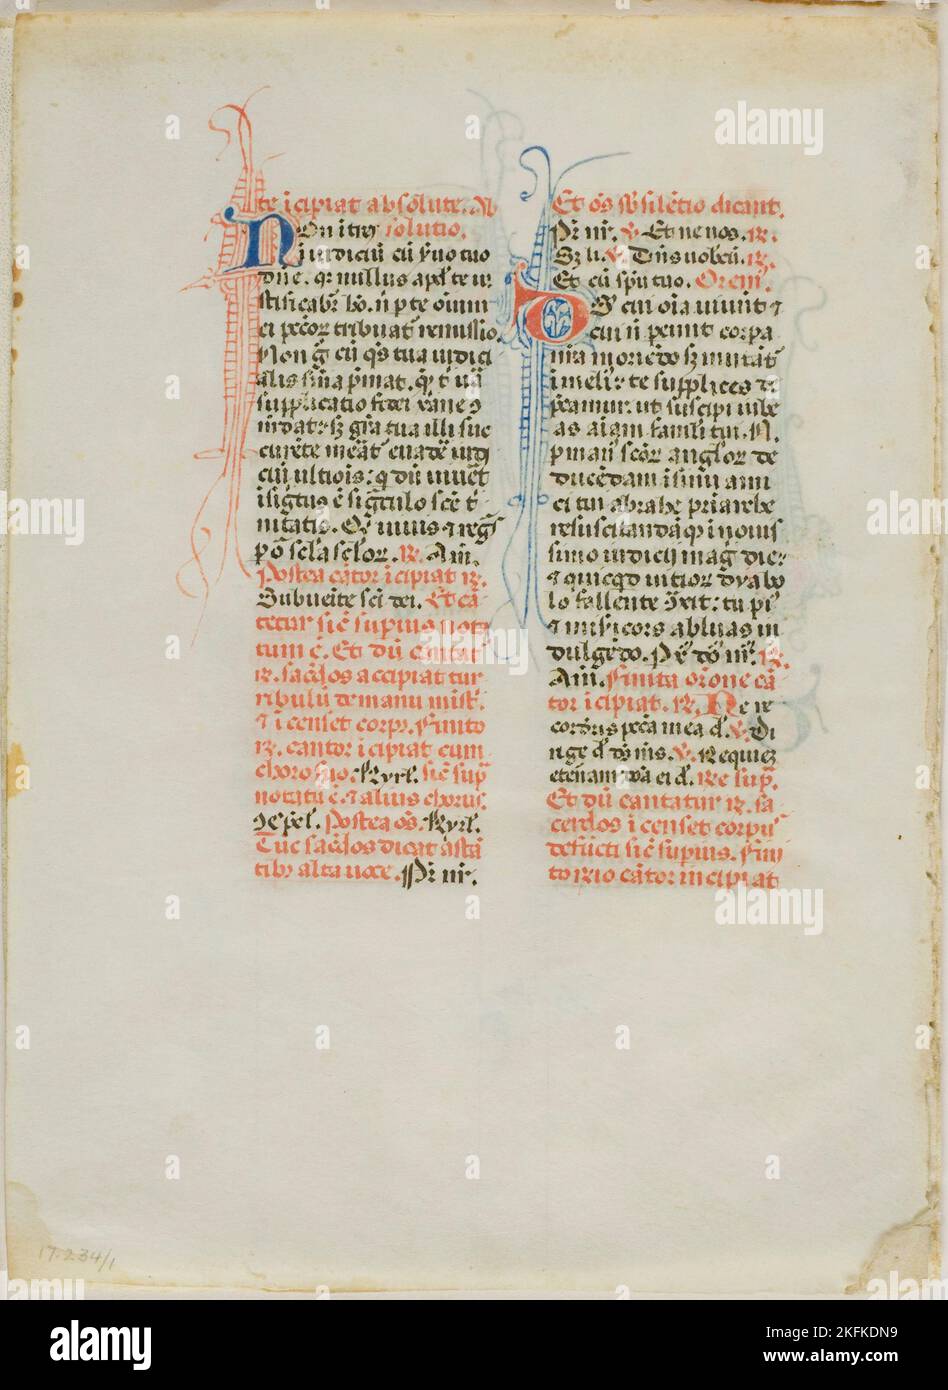 te īcipiat absolute. Ab
Non ītres solutio.
ī iudiciū cū ẜuo tuo
dn̄e. qr nullus apd' te iu
stificabr̄ hō. n̄ p te om̄iū
ei pctōr tribuat' remissio.
Non g̊ cū q̄s tua iudici
alis sn̄ia p̄mat. q̄ȝ t' uā
supplicatio fidei xāne 9
mēdat: sȝ gr̄a tua illi suc
currēte meāt' euadē iudi
ciū ultiōis: q̓ dū uiuēt
īsigtus ē signaculo scē t'
nitatis. Qi uiuis ⁊ regs
p oīa sc̄la sclor. R. Am̄.
Postea cātor īcipiat R.
Subuenite sc̄i dei. Et cā
tetur sic̄ superius nota
tum ē. Et dū cantat'
R. sacdos accipiat tur
ribulū de manu mist'.
⁊ īcenset corp. Finito
R. cantor īcipiat cum
choro suo. Kyrl'. sic̄ sup̄
notatū ē. ⁊ alius chorus
xp̄el'. Postea oēs. Kyrl'.
Tūc sacdos dicat astā
tibȝ alta uoce. Pr̄ nr̄.
Et oēs sb silētio dicant.
Pr̄ nr̄. V. Et ne nos. R.
Sȝ li. V. Dn̄s uobcū. R.
Et cū spū tuo. Orem'.
Deus cui oīa uiuūt ⁊
cui n̄ peunt corpa
nr̄a moriēdo sȝ mutāt'
ī meli': te supplices d'
p̄camur. ut suscipi iube
as aīam famuli tui. N.
p man' scōr angl'or de
ducēdam ī sinu ami
ci tui abrahe priarche
resuscitandā qȝ ī nouis
simo iudicij mag' die:
⁊ quicqd uitior dyabo
lo fallente ɔ̄xit: tu pi'
⁊ misericors abluas in
dulgēdo. Pē dōm nr̄. R.
Am̄. Finita orōne cā
tor īcipiat. R. Ne re
corderis pctā mea d'. V. Di
rige d' dōm̄s. V. Requiem
eternam dōa ei d'. Re sup̄.
Et dū cantatur R. sa
cerdos īcenset corpus
defūcti sic̄ superius. Fini
to Rio cātor incipiat
17.234/1
alamy
Image ID: 2KFKDN9
www.alamy.com